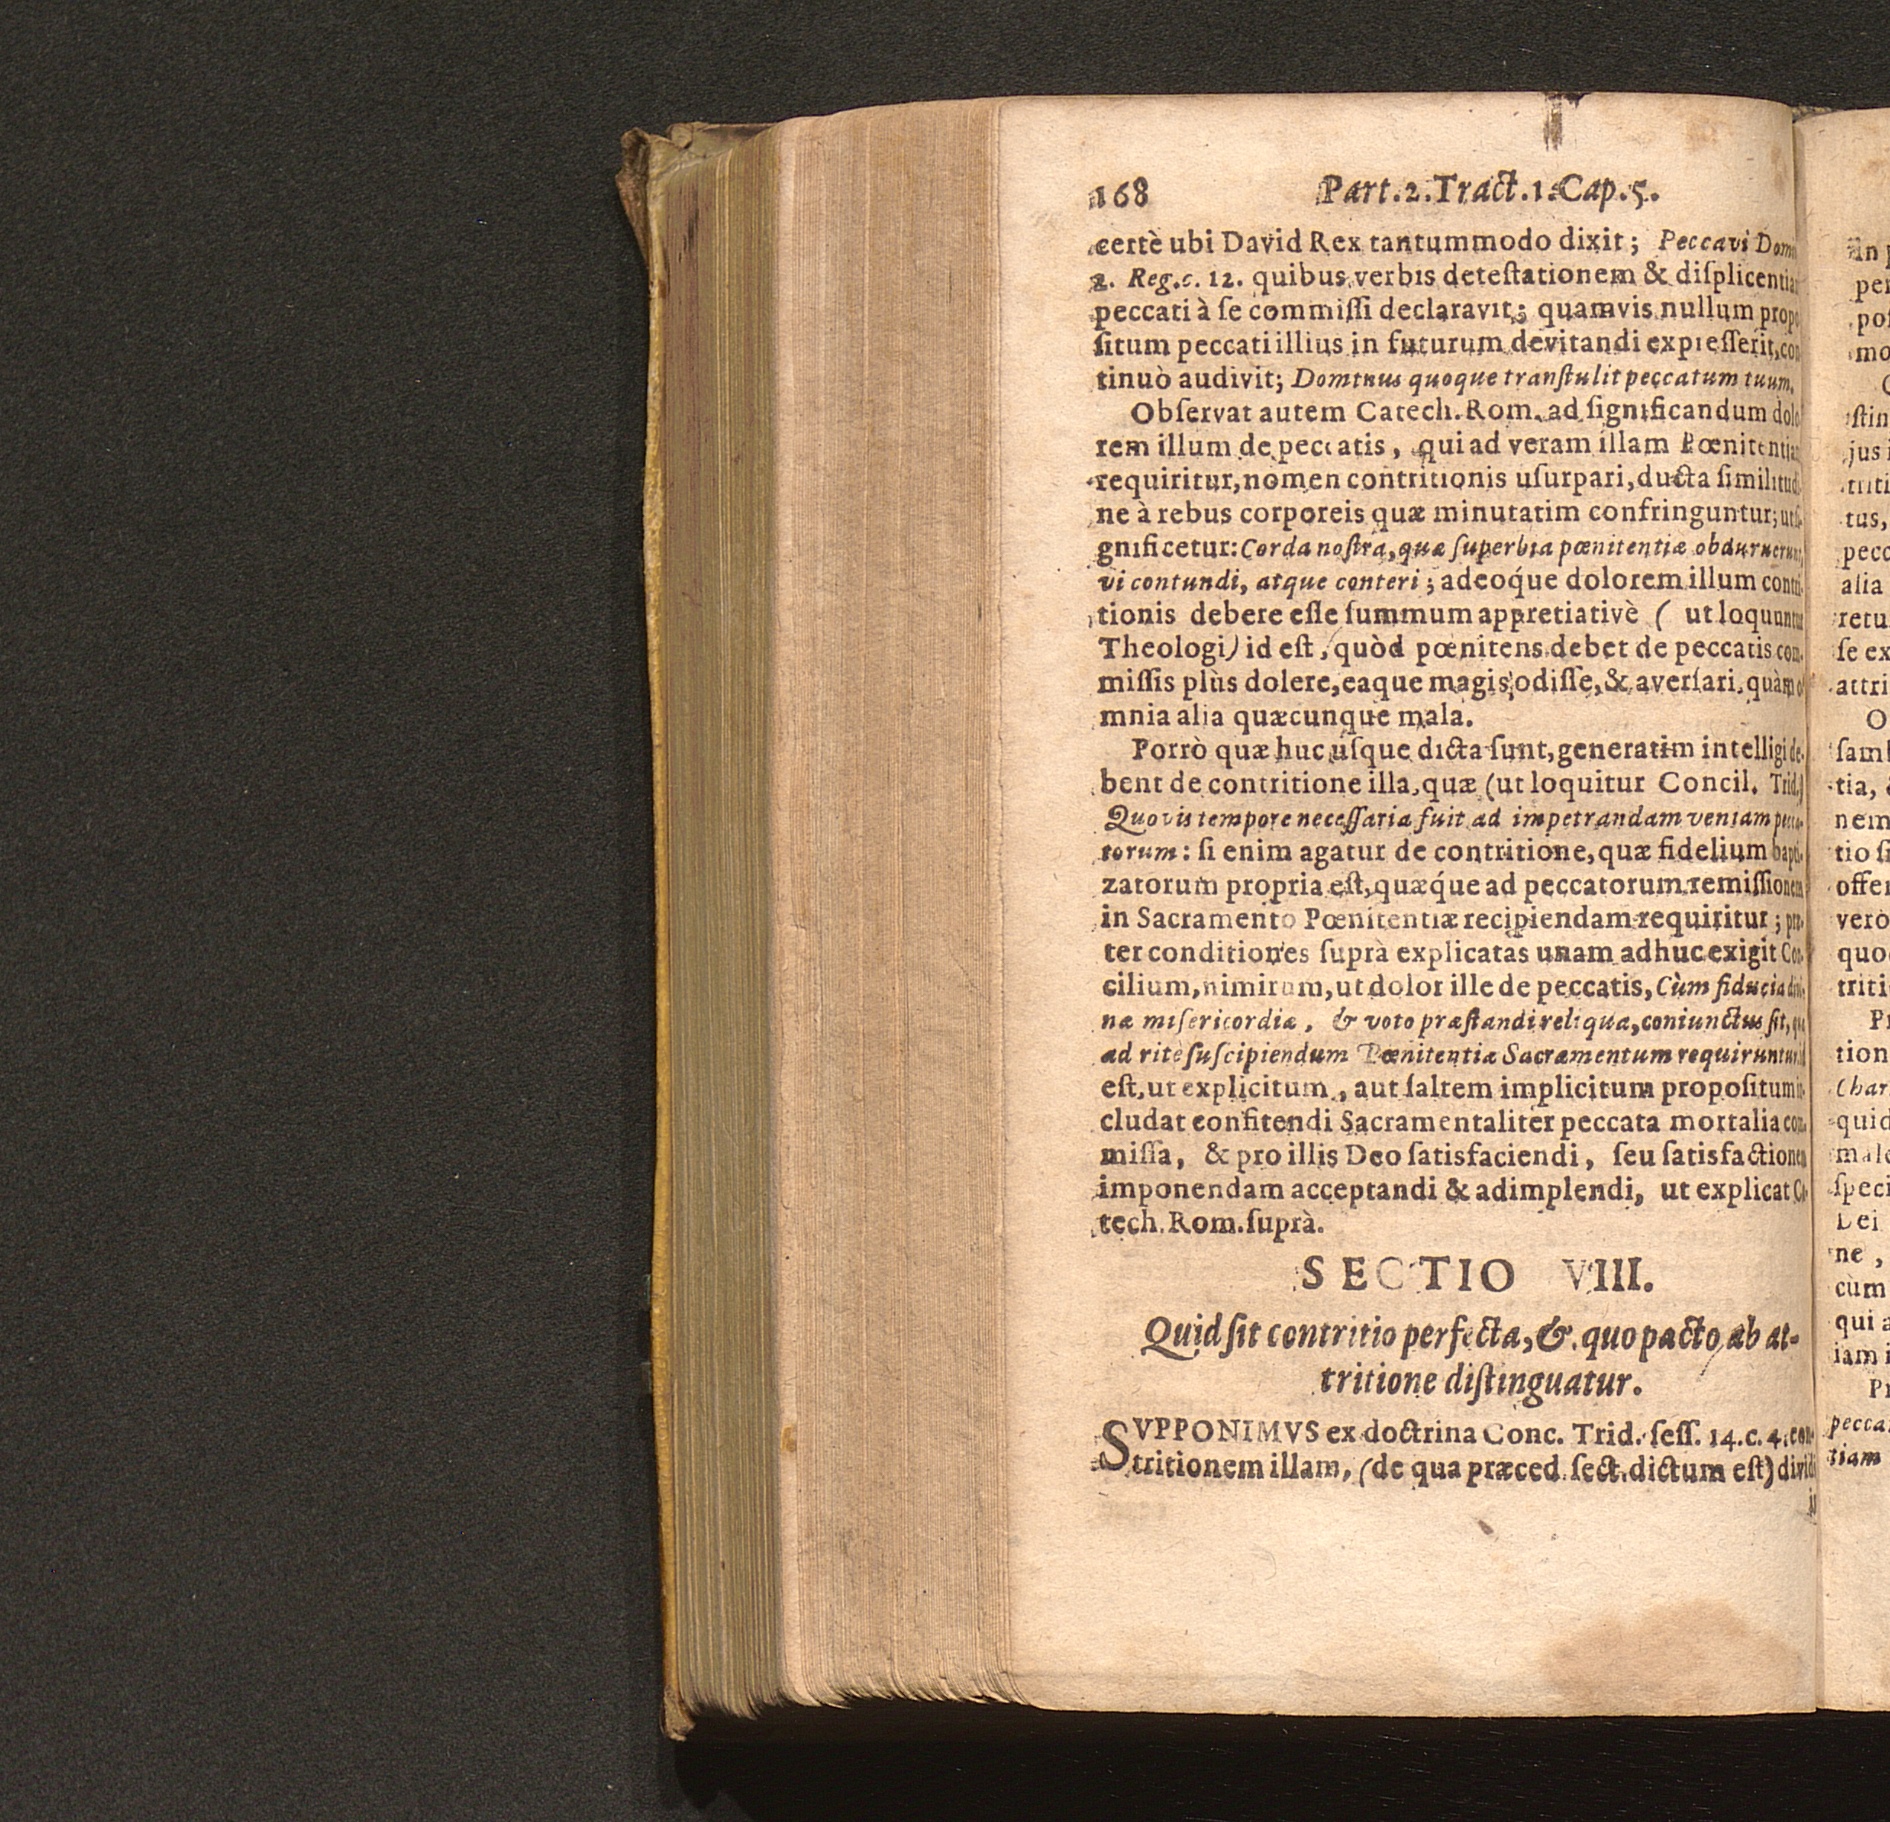 168 Part.2.Tract.1.Cap.5.
certè ubi David Rex tantummodo dixit; Peccavi
2. Reg.c. 12. quibus verbis deteſtationem & diſplicentia
peccati à ſe commiſſi declaravit; quamvis nullum propo
ſitum peccati illius in futurum devitandi expreſſerit, con
tinuò audivit; Dominus quoque tranſtulit peccatum tuum.
Obſervat autem Catech. Rom. ad ſignificandum dolo
rem illum de peccatis, qui ad veram illam Pœnitentia
requiritur, nomen contritionis uſurpari, ducta ſimilitud
ne à rebus corporeis quæ minutatim confringuntur; ut ſi-
gnificetur: Corda noſtra, quæ ſuperbia pœnitentiæ obduruerunt,
vi contundi, atque conteri; adeoq́ue dolorem illum contri-
tionis debere eſſe ſummum appretiativè ( ut loquuntur
Theologi) id eſt, quòd pœnitens debet de peccatis com-
miſſis plùs dolere, eaque magis odiſſe, & averſari, quàm o
mnia alia quæcunque mala.
Porrò quæ huc uſque dicta ſunt, generatim intelligi de-
bent de contritione illa, quæ (ut loquitur Concil. Trid.)
Quovis tempore neceſſaria fuit ad impetrandam veniam pecca-
torum: ſi enim agatur de contritione, quæ fidelium bapti-
zatorum propria eſt, quæq́ue ad peccatorum remiſſionem
in Sacramento Pœnitentiæ recipiendam requiritur; præ-
ter conditiones ſuprà explicatas unam adhuc exigit Con-
cilium, nimirum, ut dolor ille de peccatis, Cùm fiducia divi-
næ miſericordiæ, & voto præſtandi reliqua, coniunctus ſit, quæ
ad ritè ſuſcipiendum Pœnitentiæ Sacramentum requiruntur: id
eſt, ut explicitum, aut ſaltem implicitum propoſitum in-
cludat confitendi Sacramentaliter peccata mortalia com-
miſſa, & pro illis Deo ſatisfaciendi, ſeu ſatisfactionem
imponendam acceptandi & adimplendi, ut explicat Ca-
tech. Rom. ſuprà.
SECTIO VIII.
Quid ſit contritio perfecta, & quo pacto ab at-
tritione diſtinguatur.
SVPPONIMVS ex doctrina Conc. Trid. ſeſſ. 14. c. 4. con-
tritionem illam, (de qua præced. ſect. dictum eſt) dividi